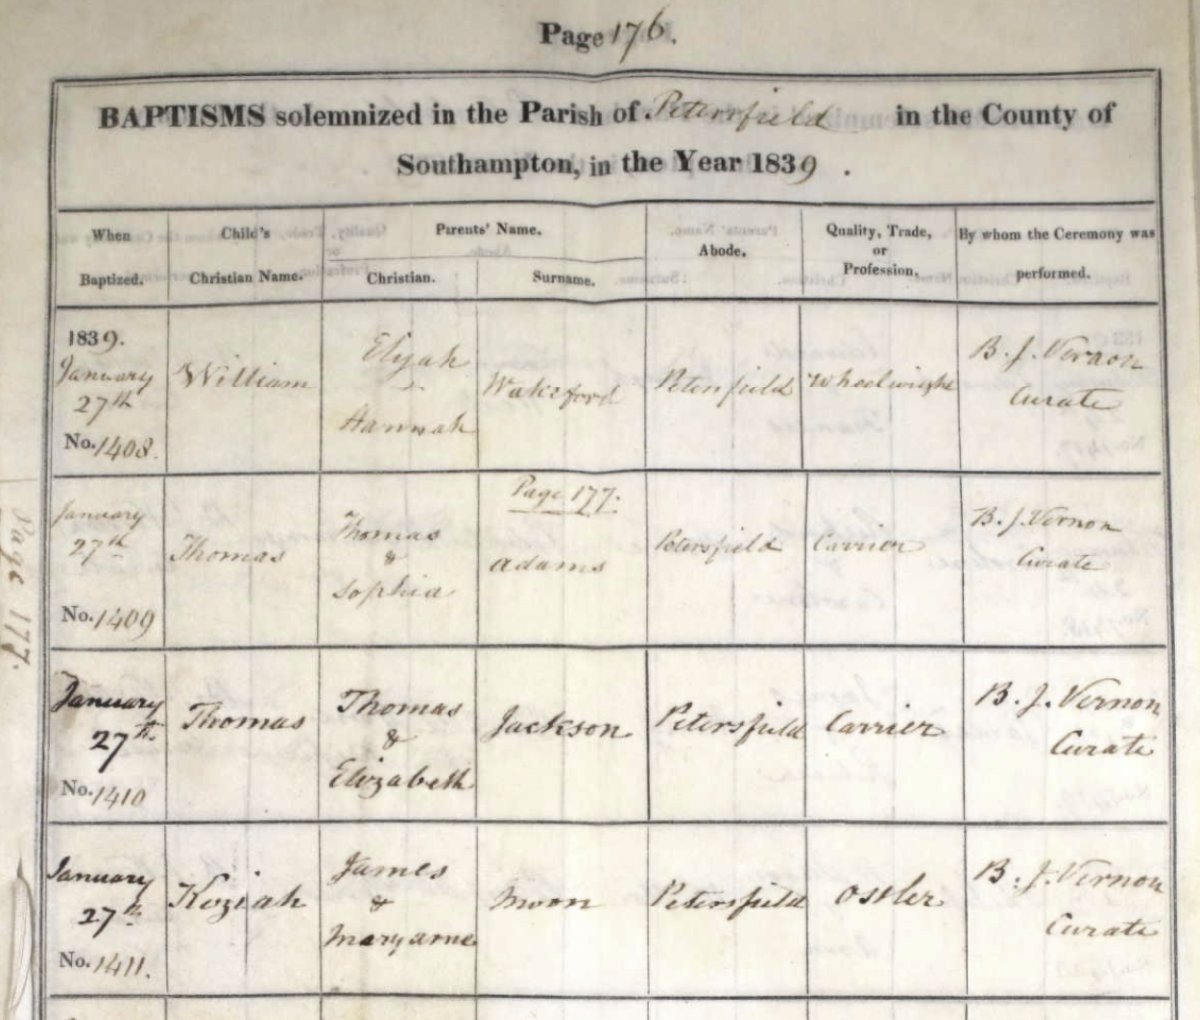 Page 176.
BAPTISMS solemnized in the Parish of Petersfield in the County of
Southampton, in the Year 1839.
When Baptized.
Child's Christian Name.
Parents' Name.
Christian.
Surname.
Abode.
Quality, Trade, or Profession.
By whom the Ceremony was performed.
1839.
January
27th
No. 1408.
William
Elijah
Hannah
Wakeford
Petersfield
Wheelwright
B. J. Vernon
Curate
January
27th
No. 1409
Thomas
Thomas
&
Sophia
Page 177.
Adams
Petersfield
Carrier
B. J. Vernon
Curate
January
27th
No. 1410
Thomas
Thomas
&
Elizabeth
Jackson
Petersfield
Carrier
B. J. Vernon
Curate
January
27th
No. 1411.
Keziah
James
&
Maryanne
Moon
Petersfield
Ostler
B. J. Vernon
Curate
Page 177.